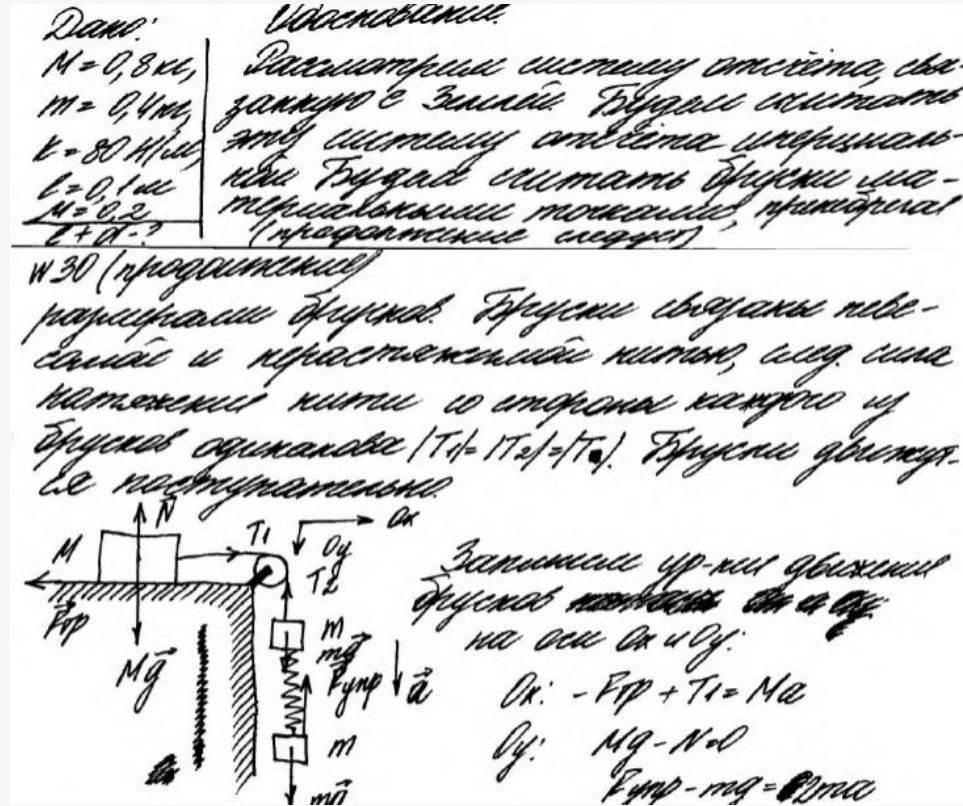 Дано:
M = 0,8 кг,
m = 0,4 кг,
k = 80 Н/м
l = 0,1 м
μ = 0,2
l + d - ?
Обоснование.
Рассмотрим систему отсчёта, свя-
занную с Землёй. Будем считать
эту систему отсчёта инерциаль-
ной. Будем считать бруски ма-
териальными точками, пренебрегая
(продолжение следует)
№30 (продолжение)
размерами брусков. Бруски связаны неве-
сомой и нерастяжимой нитью, след. сила
натяжения нити со стороны каждого из
брусков одинакова |T1|=|T2|=|T|. Бруски движут-
ся поступательно.
N
M
T1
Ox
Oy
T2
Fтр
Mg
m
mg
Fупр
a
m
mg
Запишем ур-ния движения
брусков
на оси Ox и Oy:
Ox: - Fтр + T1 = Ma
Oy: Mg - N = 0
Fупр - mg = 2ma